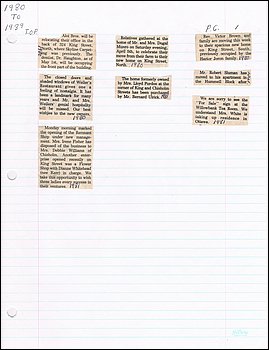 1980
TO
1989
I.O.F.
P.G. 1
Alct Bros. will be
relocating their office in the
back of 324 King Street,
North, where Skelton Carpet-
ing was previously. The
dentist, Dr. Haughton, as of
May 1st, will be occupying
the front part of the building.
The closed doors and
shaded windows of Walter's
Restaurant gives one a
feeling of nostalgia. It has
been a landmark for many
years and Mr. and Mrs.
Walters' genial hospitality
will be missed. Our best
wishes to the new owners.
1980
Monday morning marked
the opening of the
Shop under new manage-
ment. Mrs. Irene Fisher has
disposed of the business to
Mrs. Debbie Williams of
Chisholm. Another enter-
prise opened recently on
King Street was a Flower
Shop with Dianne Whitehead
(nee Kerr) in charge. We
take this opportunity to wish
these ladies every success in
their ventures. 1981
Relatives gathered at the
home of Mr. and Mrs. Dugal
Munro on Saturday evening,
April 5th, to celebrate their
move from their farm to their
new home on King Street,
North. 1980
The home formerly owned
by Mrs. Lloyd Purdon at the
corner of King and Chisholm
Streets has been purchased
by Mr. Bernard Ulrick.
Rev. Victor Brown, and
family are moving this week
to their spacious new home
on King Street, South,
previously occupied by the
Hector Jeron family. 1981
Mr. Robert Sluman has
moved to his apartment in
the Hummell Block after
We are sorry to see the
"For Sale" sign at the
Willowtree Tea Room. We
understand Mrs. White is
taking up residence in
Ottawa. 1981